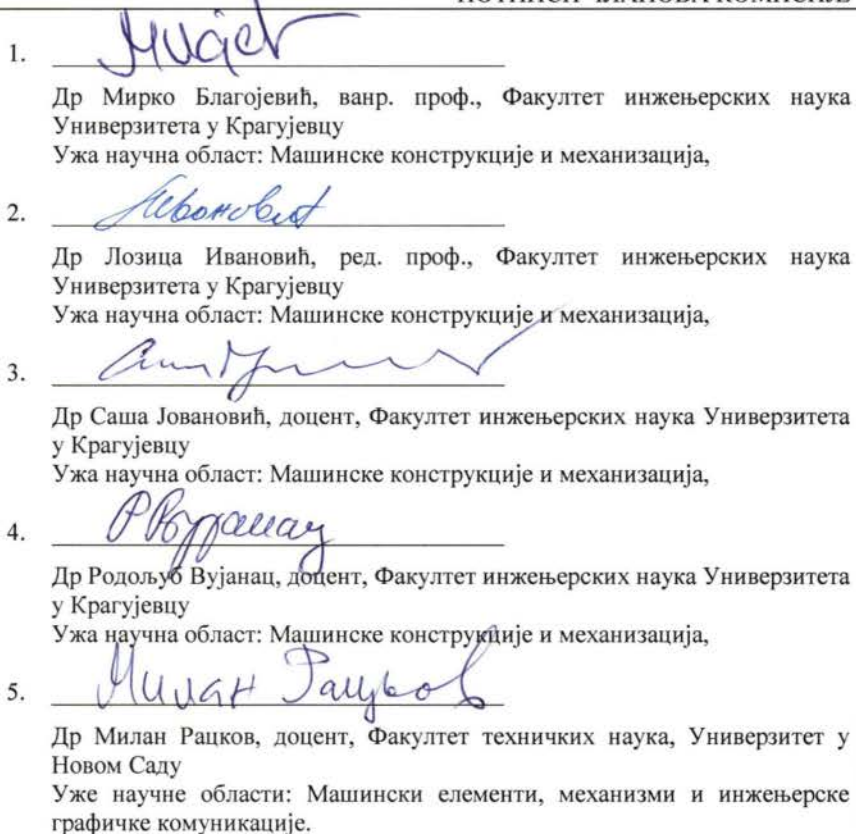 1.
Др Мирко Благојевић, ванр. проф., Факултет инжењерских наука
Универзитета у Крагујевцу
Ужа научна област: Машинске конструкције и механизација,
2. Ивановић
Др Лозица Ивановић, ред. проф., Факултет инжењерских наука
Универзитета у Крагујевцу
Ужа научна област: Машинске конструкције и механизација,
3.
Др Саша Јовановић, доцент, Факултет инжењерских наука Универзитета
у Крагујевцу
Ужа научна област: Машинске конструкције и механизација,
4. Р Вујанац
Др Родољуб Вујанац, доцент, Факултет инжењерских наука Универзитета
у Крагујевцу
Ужа научна област: Машинске конструкције и механизација,
5. Милан Рацков
Др Милан Рацков, доцент, Факултет техничких наука, Универзитет у
Новом Саду
Уже научне области: Машински елементи, механизми и инжењерске
графичке комуникације.